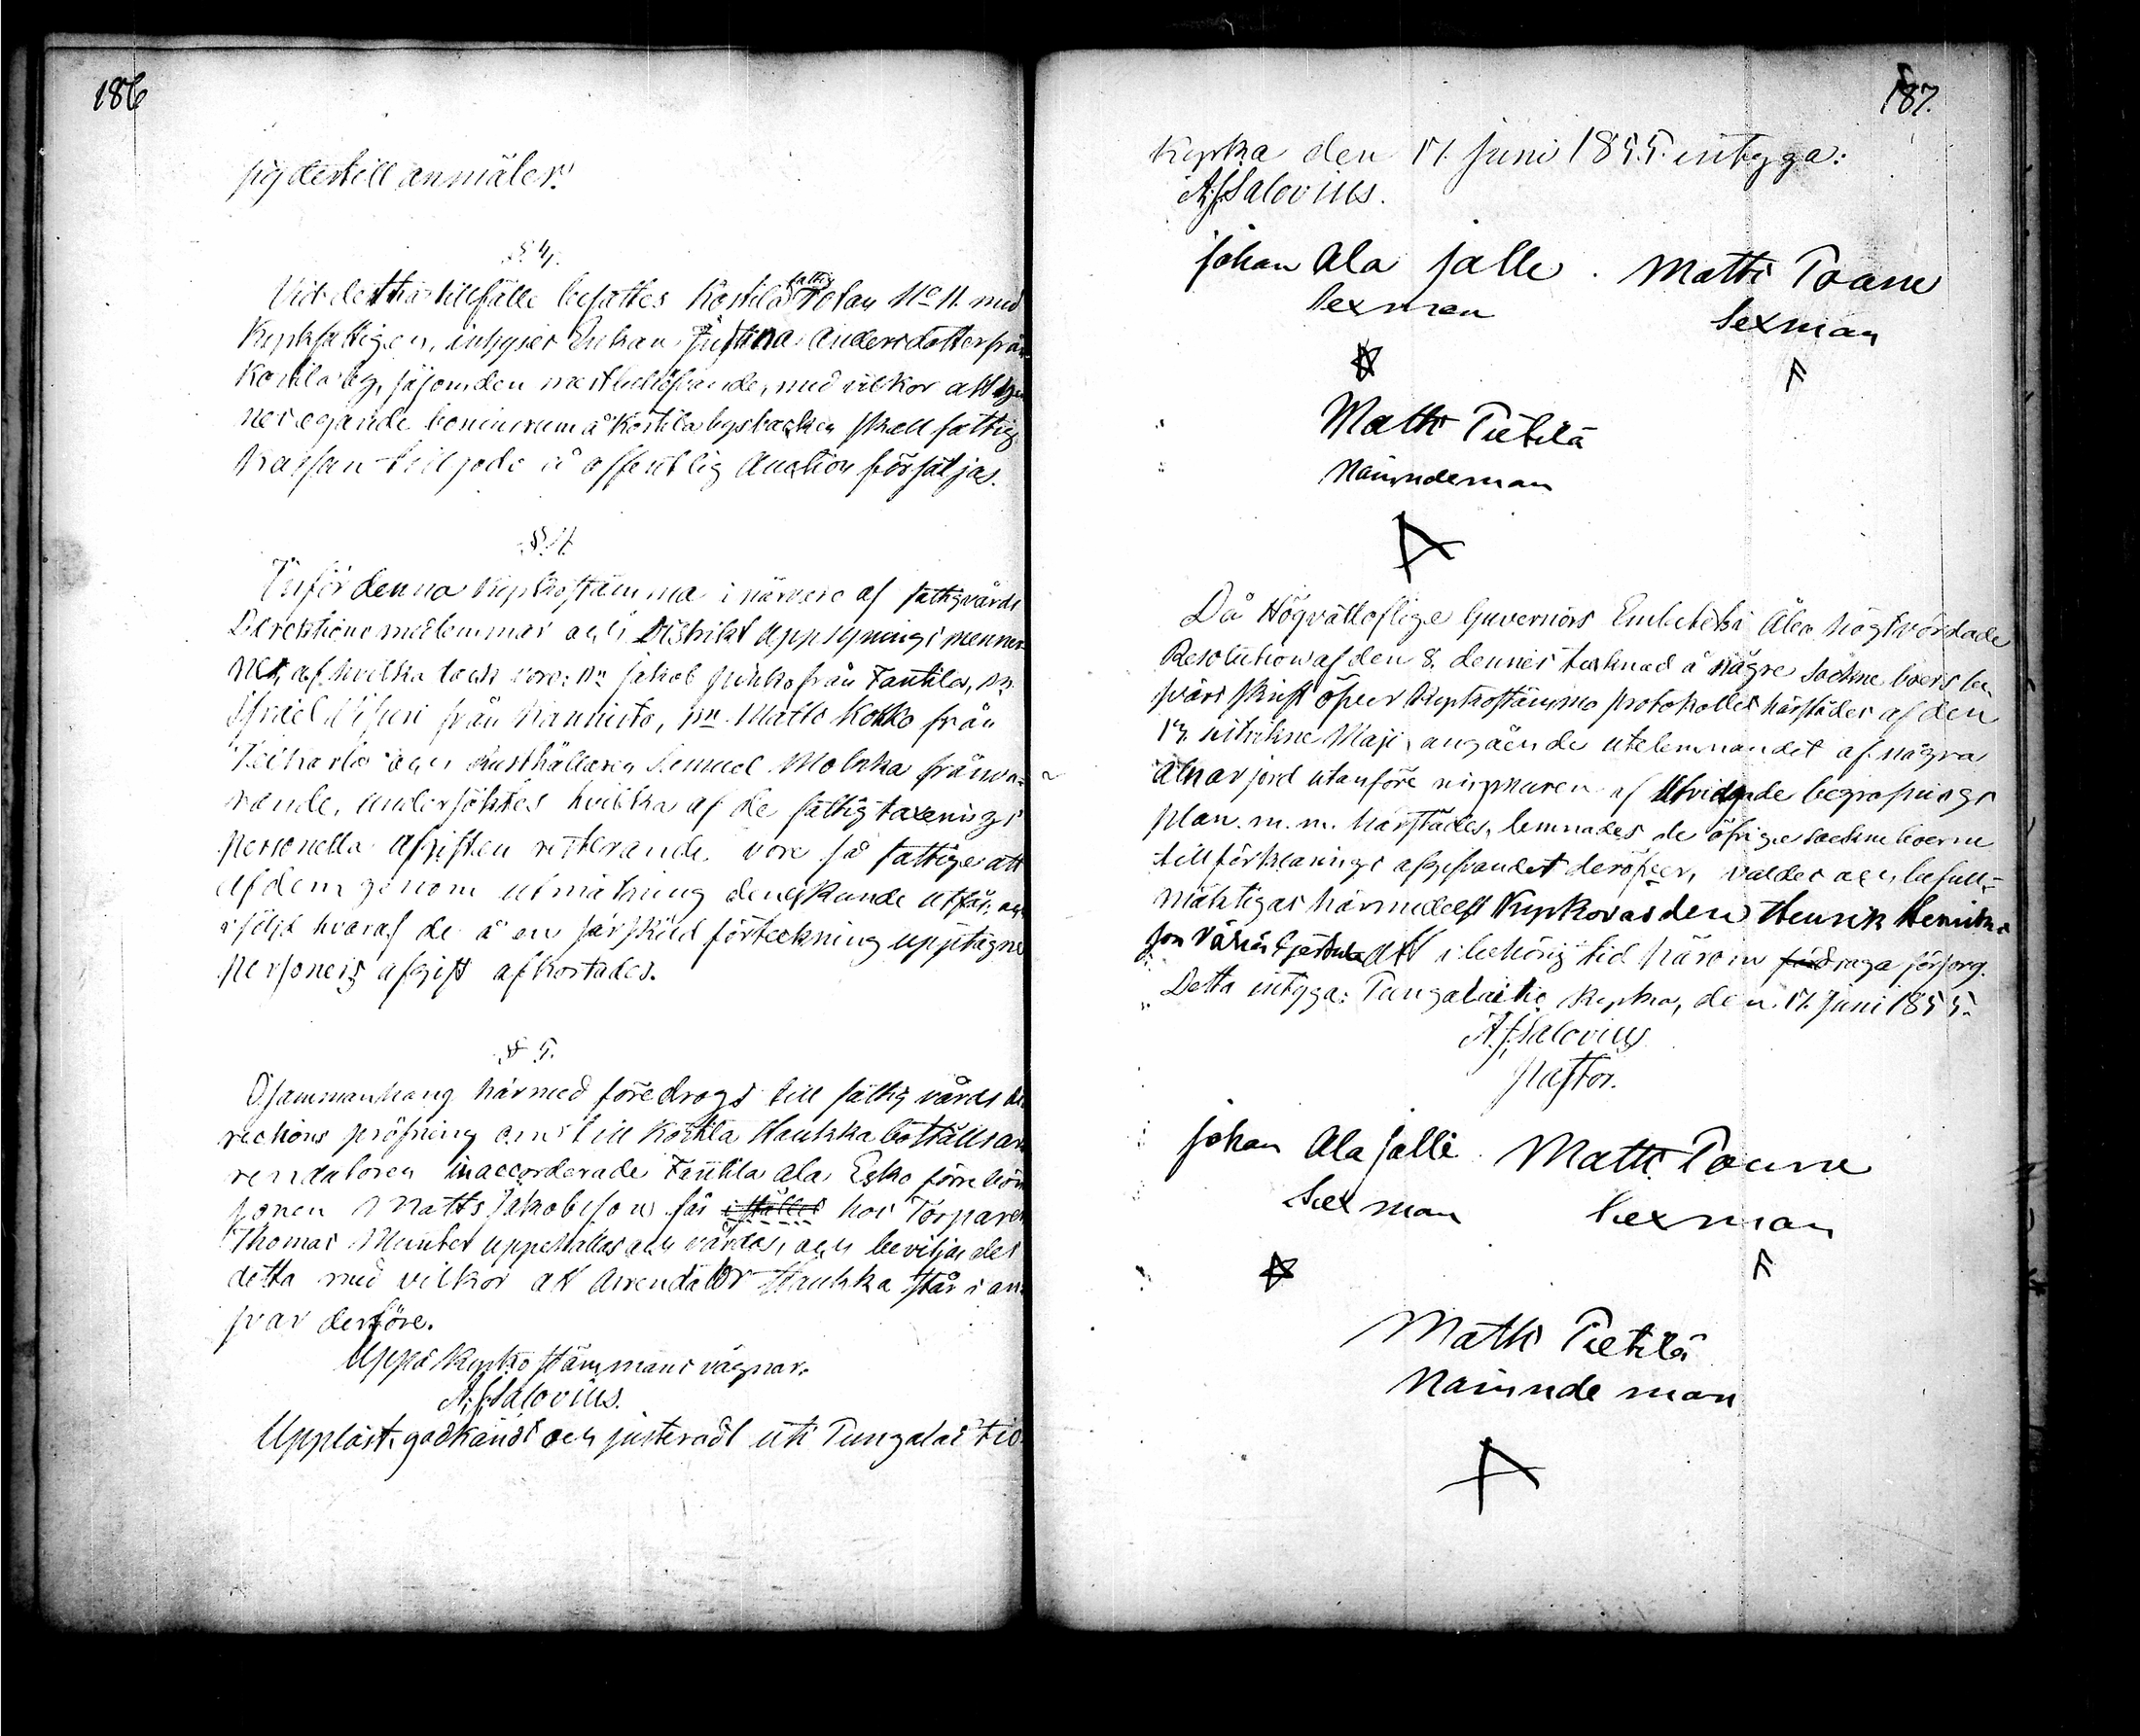 186
sig dertill anmäler.
§. 4.
Vid detta tillfälle besattes Köstilä fattig Rotan No 11. med
Kyrkfattigen, inhyses Enkan Justina Andersdotter från
Köstilä by, såsom den mest behöfvande, med vilkor att hen
nes egande boningsrum å Köstilä bysbacken skall fattig
Kassan till godo å offentlig Auction försäljas.
Inför denna Kyrkostämma i närvaro af fattigvårds
Direktions medlemmar och Distrikt Uppsynings mennen
af hvilka dock voro: Jakob från Tanttila,
Israel från Mannisto, Matts Kokko från
och Rusthållaren Samuel frånva-
rande, undersöktes hvilka af de fattig taxerings
personella afgiften resterande, vore så fattige att
af dem genom utmätning den ej kunde utfås, och
i följd hvaraf de å en särskild förteckning upptagne
personers afgift afkortades.
§ 5.
I sammanhang härmed föredrogs till fattig vårds di
rections pröfning om till Köstilä Haukka boställs ar
rendatoren inaccorderade Tanttila Ala Esko
sonen Matts Jakobsson får i stället hos Torparen
Thomas Munter uppehållas och vårdas, och beviljades
detta med vilkor att Arrendator Haukka står i an-
svar derföre.
Uppå Kyrko stämmans vägnar.
A. J. Salovius.
Uppläst, godkändt och justeradt uti Pungalaitio
187.
Kyrka den 17. Juni 1855. intyga:
A. J. Salovius.
Johan Ala jalli. Matti Paane
Sexman
Sexman
Matti Pietilä
Nämndeman
Då Högvällofliga Guvernörs Embetets i Åbo högtvördade
Resolution af den 8. dennes tecknad å några sockne boers be-
svärs skrift öfver Kyrkostämmo protokollet härstädes af den
sistlidne Maji, angående utelemnandet af några
alnar jord utanföre ringmuren af Utvidgade begrafnings
plan. m. m. härstädes, lemnades de öfriga sockne boerne
till förklarings afgifvandet deröfver, valdes och befull-
mäktigas härmedelst Kyrkovärden Henrik Henriks-
son att i behörig tid härom draga försorg.
Detta intyga: Pungalaitio Kyrka, den 17. Juni 1855.
A. J. Salovius
Pastor.
Johan Ala jalli. Matti Paane
Sexman Sexman
Matti Pietilä
Nämnde man